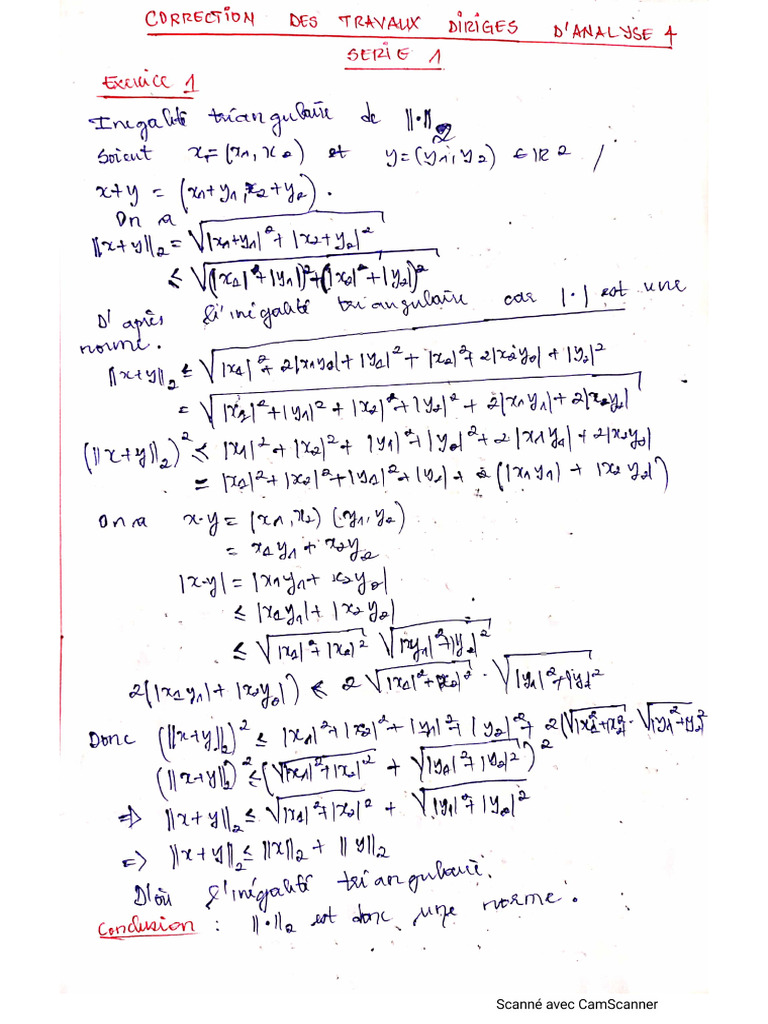 CORRECTION DES TRAVAUX DIRIGES D'ANALYSE 4
SERIE 1
Exercice 1
Inegalité triangulaire de ||•||₂
Soient x=(x1, x2) et y=(y1, y2) ∈ IR² /
x+y = (x1+y1, x2+y2).
On a
||x+y||₂ = √(|x1+y1|² + |x2+y2|²)
≤ √((|x1|+|y1|)²+(|x2|+|y2|)²)
D'après l'inégalité triangulaire car |•| est une
norme.
||x+y||₂ ≤ √(|x1|²+2|x1y1|+|y1|²+|x2|²+2|x2y2|+|y2|²)
= √(|x1|²+|y1|²+|x2|²+|y2|²+2|x1y1|+2|x2y2|)
(||x+y||₂)² ≤ |x1|²+|x2|²+|y1|²+|y2|²+2|x1y1|+2|x2y2|
= |x1|²+|x2|²+|y1|²+|y2|+2(|x1y1|+|x2y2|)
On a x·y = (x1, x2)(y1, y2)
= x1y1 + x2y2
|x·y| = |x1y1 + x2y2|
≤ |x1y1|+|x2y2|
≤ √(|x1|²+|x2|²) √(|y1|²+|y2|²)
2(|x1y1|+|x2y2|) ≤ 2√(|x1|²+|x2|²) · √(|y1|²+|y2|²)
Donc (||x+y||₂)² ≤ |x1|²+|x2|²+|y1|²+|y2|²+2(√(|x1|²+|x2|²) · √(|y1|²+|y2|²)
(||x+y||₂)² ≤ (√(|x1|²+|x2|²) + √(|y1|²+|y2|²))²
⇒ ||x+y||₂ ≤ √(|x1|²+|x2|²) + √(|y1|²+|y2|²)
⇒ ||x+y||₂ ≤ ||x||₂ + ||y||₂
D'où l'inégalité triangulaire.
Conclusion : ||•||₂ est donc une norme.
Scanné avec CamScanner